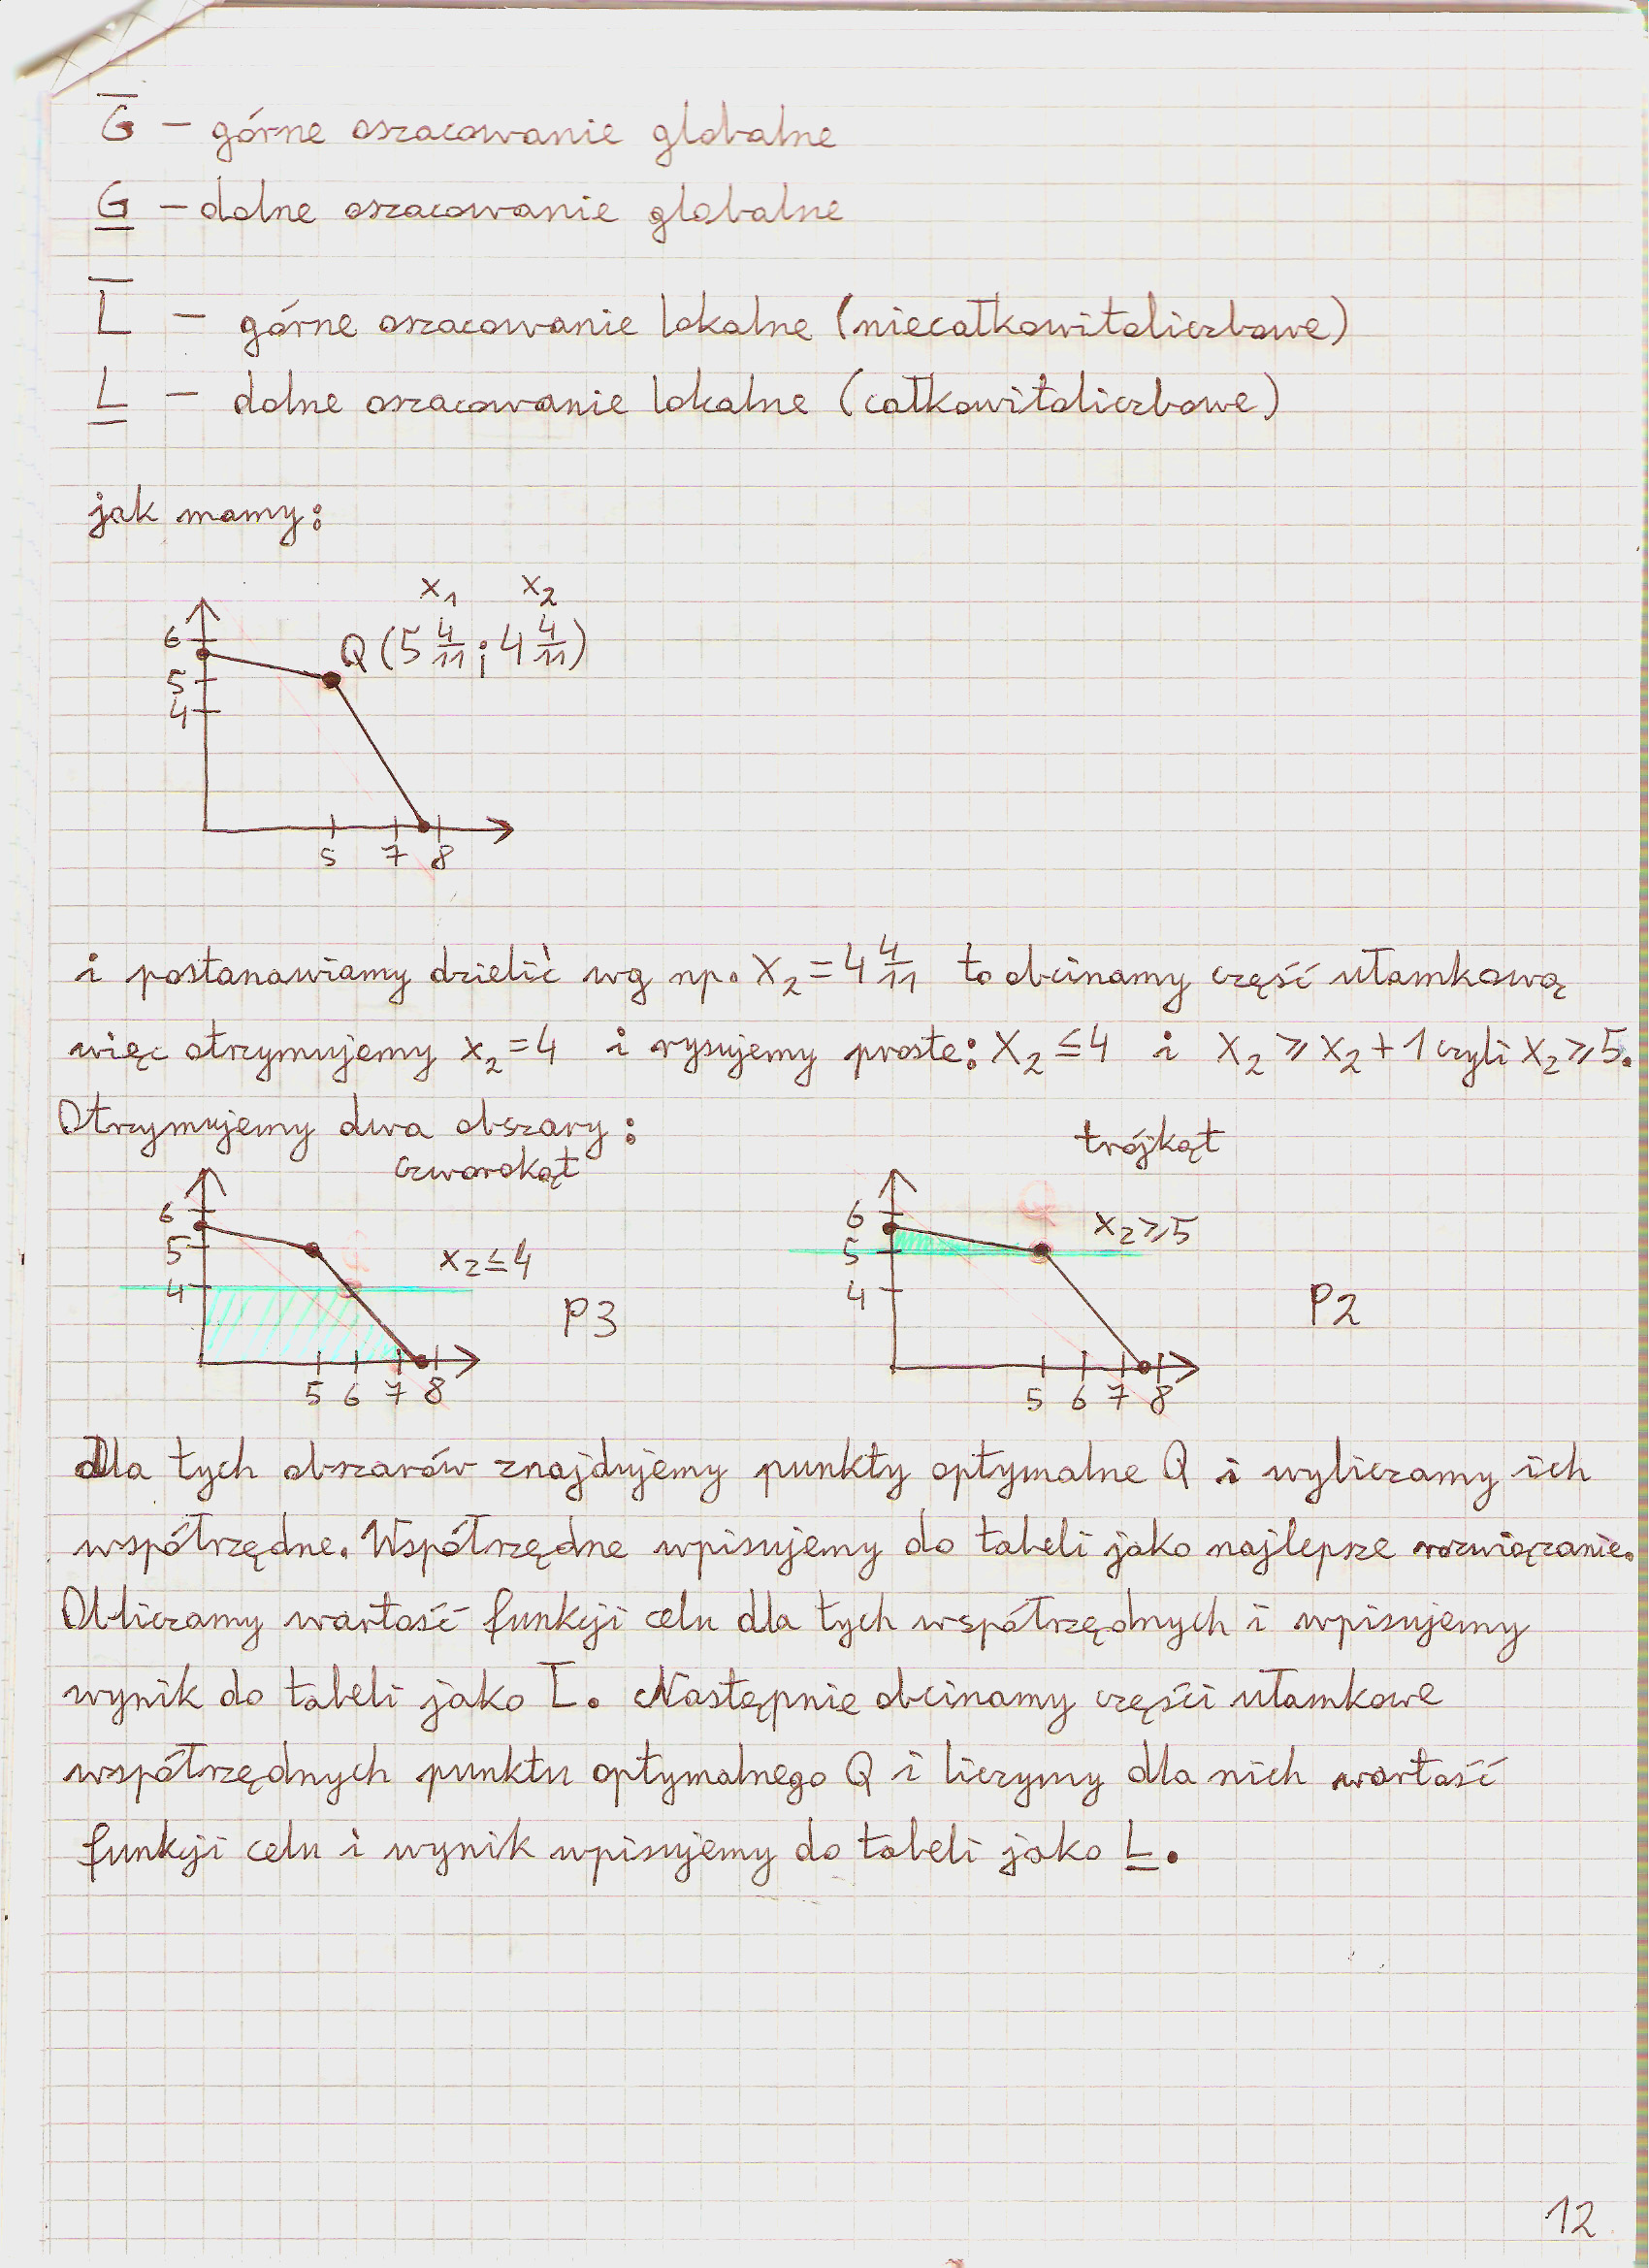 G̅ – górne oszacowanie globalne
G̲ – dolne oszacowanie globalne
L̅ – górne oszacowanie lokalne (niecałkowitoliczbowe)
L̲ – dolne oszacowanie lokalne (całkowitoliczbowe)
jak mamy:
x₁ x₂
Q (5 4/11 ; 4 4/11)
6
5
4
5 7 8
i postanawiamy dzielić wg np. x₂ = 4 4/11 to obcinamy część ułamkową
więc otrzymujemy x₂ = 4 i rysujemy proste: x₂ ≤ 4 i x₂ ⩾ x₂ + 1 czyli x₂ ⩾ 5.
Otrzymujemy dwa obszary:
czworokąt
6
5
4
x₂ ≤ 4
P3
5 6 7 8
trójkąt
6
5
4
x₂ ⩾ 5
P2
5 6 7 8
dla tych obszarów znajdujemy punkty optymalne Q i wyliczamy ich
współrzędne. Współrzędne wpisujemy do tabeli jako najlepsze rozwiązanie.
Obliczamy wartość funkcji celu dla tych współrzędnych i wpisujemy
wynik do tabeli jako L̅. Następnie obcinamy części ułamkowe
współrzędnych punktu optymalnego Q i liczymy dla nich wartość
funkcji celu i wynik wpisujemy do tabeli jako L̲.
12